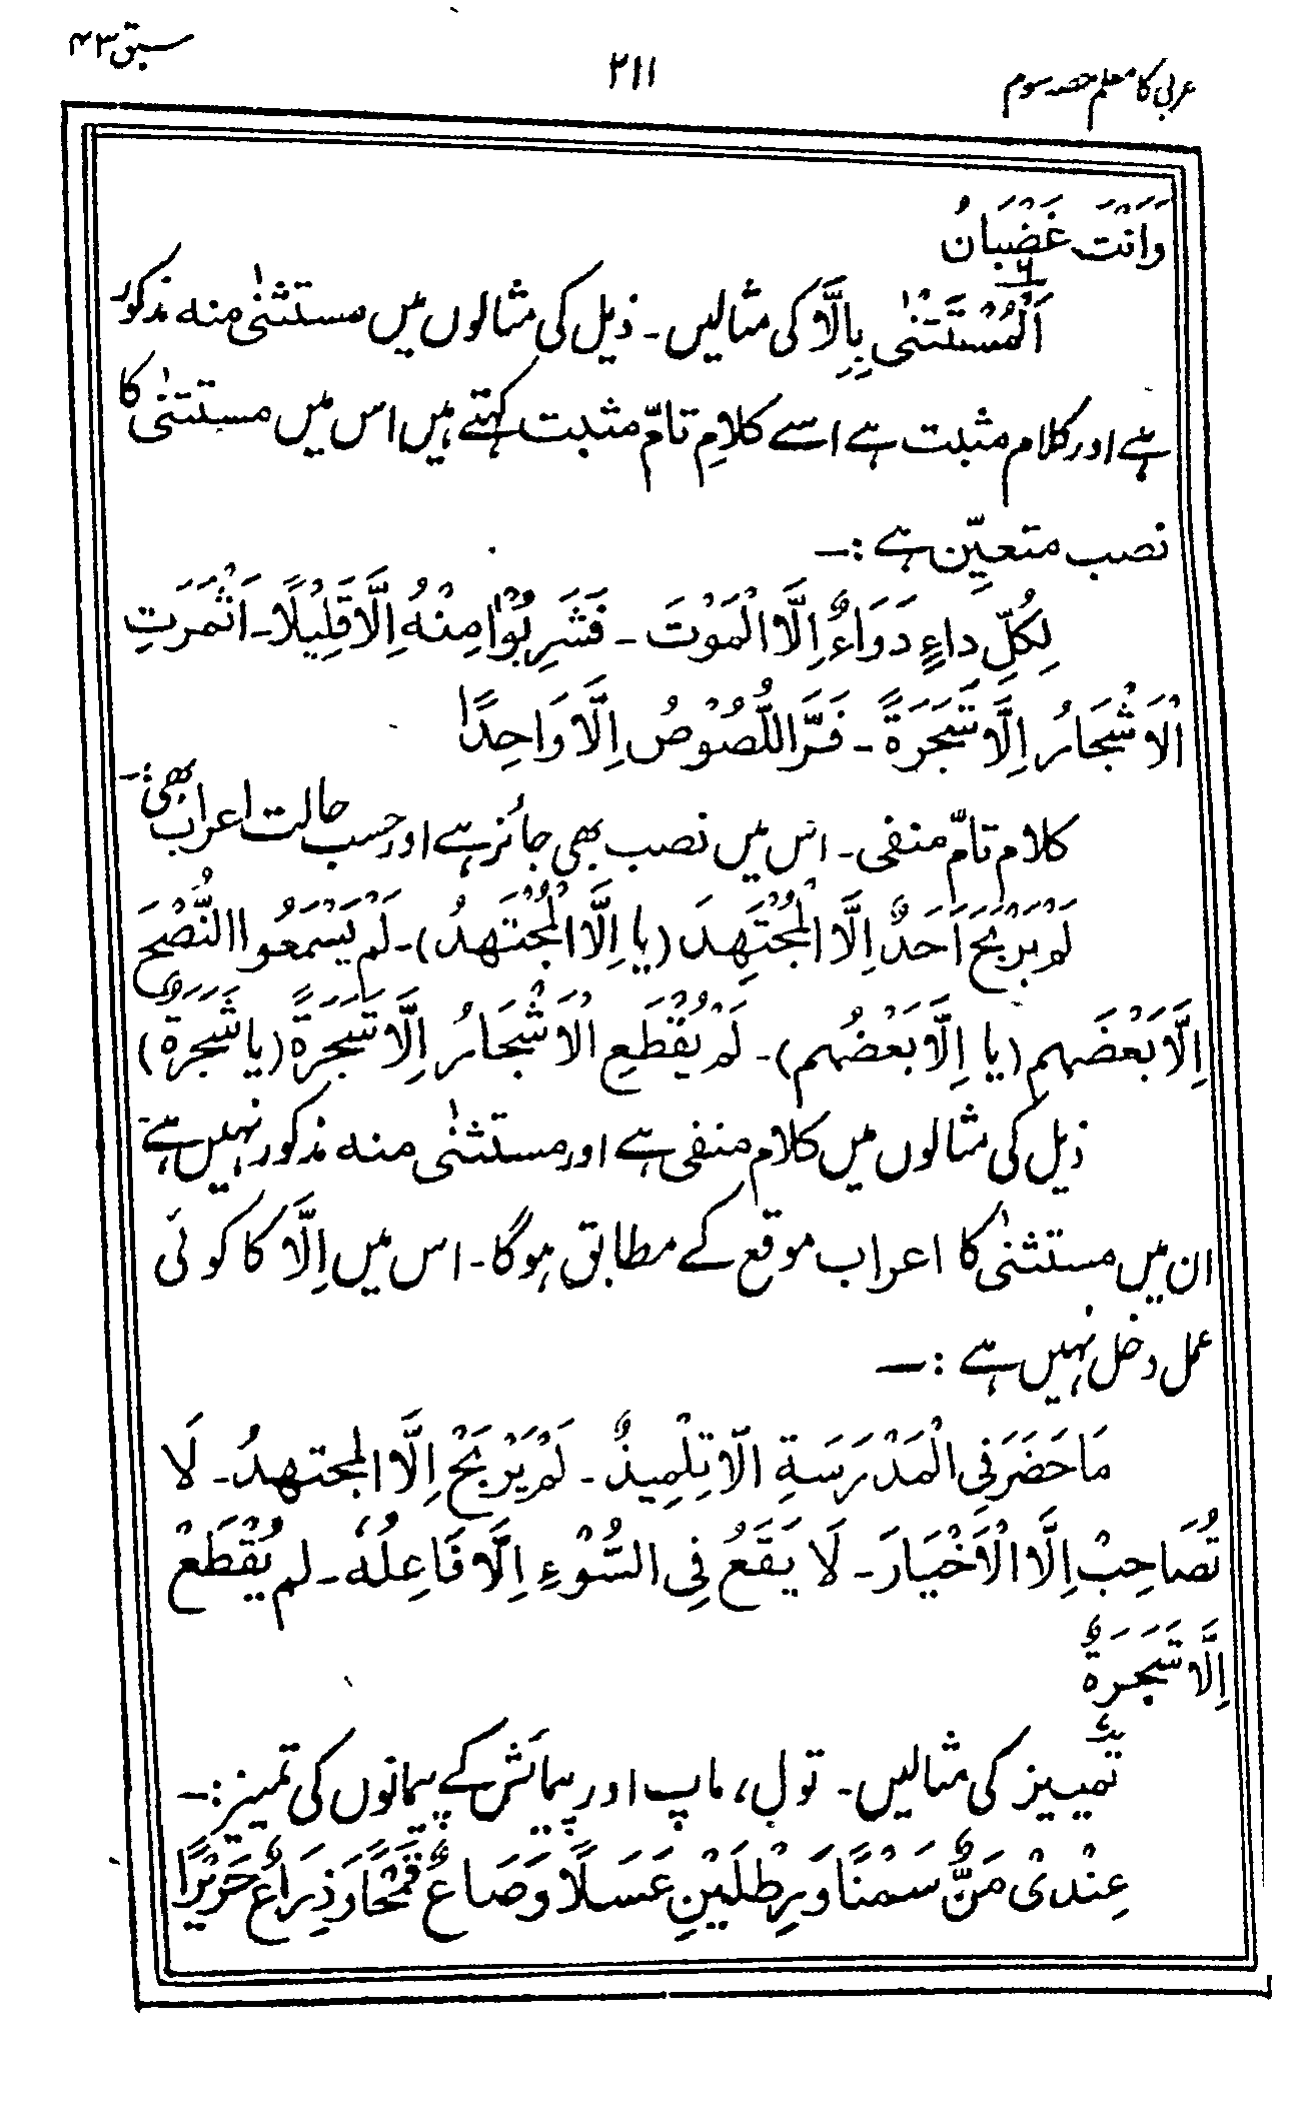 عربی کا معلم حصہ سوم
۲۱۱
سبق ۴۳
وَاَنْتَ غَضْبَانُ
۶
اَلْمُسْتَثْنٰی بِاِلَّا کی مثالیں۔ ذیل کی مثالوں میں مستثنٰی منہ مذکور
ہے اور کلام مثبت ہے اسے کلامِ تامّ مثبت کہتے ہیں اس میں مستثنٰی کا
نصب متعیّن ہے :—
لِکُلِّ داءٍ دَوَاءٌ اِلَّا الْمَوْتَ ۔ فَشَرِبُوْا مِنْهُ اِلَّا قَلِیْلًا۔ اَثْمَرَتِ
الْاَشْجَارُ اِلَّا شَجَرَةً ۔ فَرَّ اللُّصُوْصُ اِلَّا وَاحِدًا
کلام تامّ منفی ۔ اس میں نصب بھی جائز ہے اور حسب حالت اعراب بھی :—
لَمْ یَرْبَحْ اَحَدٌ اِلَّا الْمُجْتَهِدَ (یا اِلَّا الْمُجْتَهِدُ)۔ لَمْ یَسْمَعُوا النُّصْحَ
اِلَّا بَعْضَهم (یا اِلَّا بَعْضُهم)۔ لَمْ یُقْطَعِ الْاَشْجَارُ اِلَّا شَجَرَةً (یا شَجَرَةٌ)
ذیل کی مثالوں میں کلام منفی ہے اور مستثنٰی منہ مذکور نہیں ہے
ان میں مستثنٰی کا اعراب موقع کے مطابق ہوگا۔ اس میں اِلَّا کا کوئی
عمل دخل نہیں ہے :—
مَا حَضَرَ فِی الْمَدْرَسَةِ الّا تِلْمِیذٌ ۔ لَمْ یَرْبَحْ اِلَّا المجتهدُ ۔ لَا
تُصَاحِبْ اِلَّا الْاَخْیَارَ ۔ لَا یَقَعُ فِی السُّوْءِ اِلَّا فَاعِلُهٗ ۔ لم یُقْطَعْ
اِلَّا شَجَرَةٌ
تمییز کی مثالیں ۔ تول، ماپ اور پیمائش کے پیمانوں کی تمیز :—
عِنْدِیْ مَنٌّ سَمْنًا وَ رِطْلَیْنِ عَسَلًا وَ صَاعٌ قَمْحًا وَ ذِرَاعٌ حَرِیْرًا